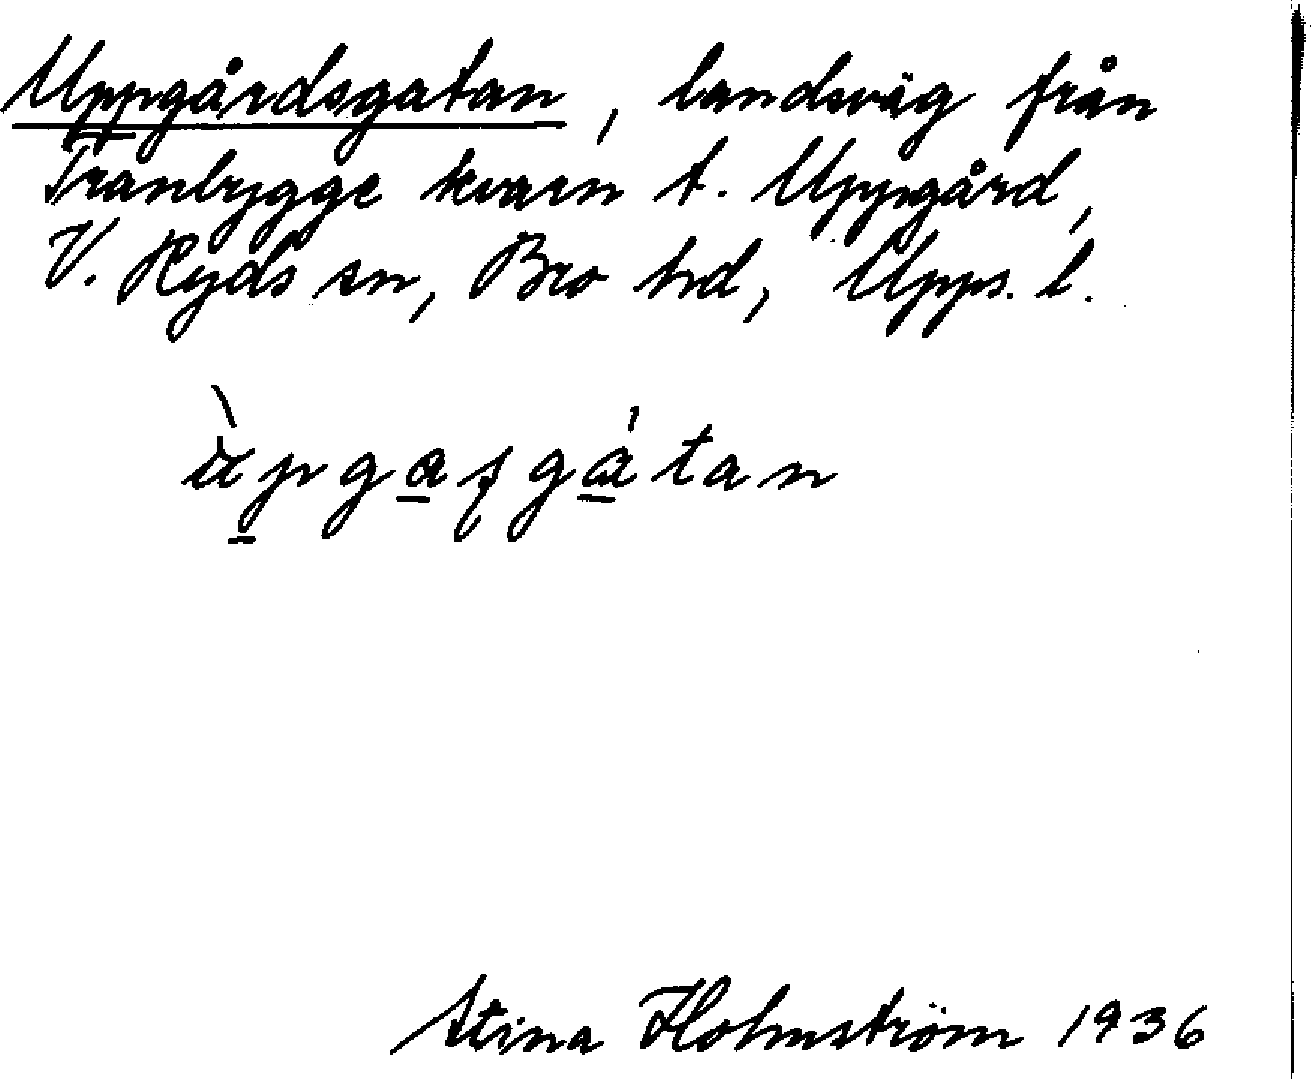 Uppgårdsgatan, landsväg från
Tranbygge kvarn t. Uppgård,
V. Ryds sn, Bro hd, Upps. l.
Stina Holmström 1936